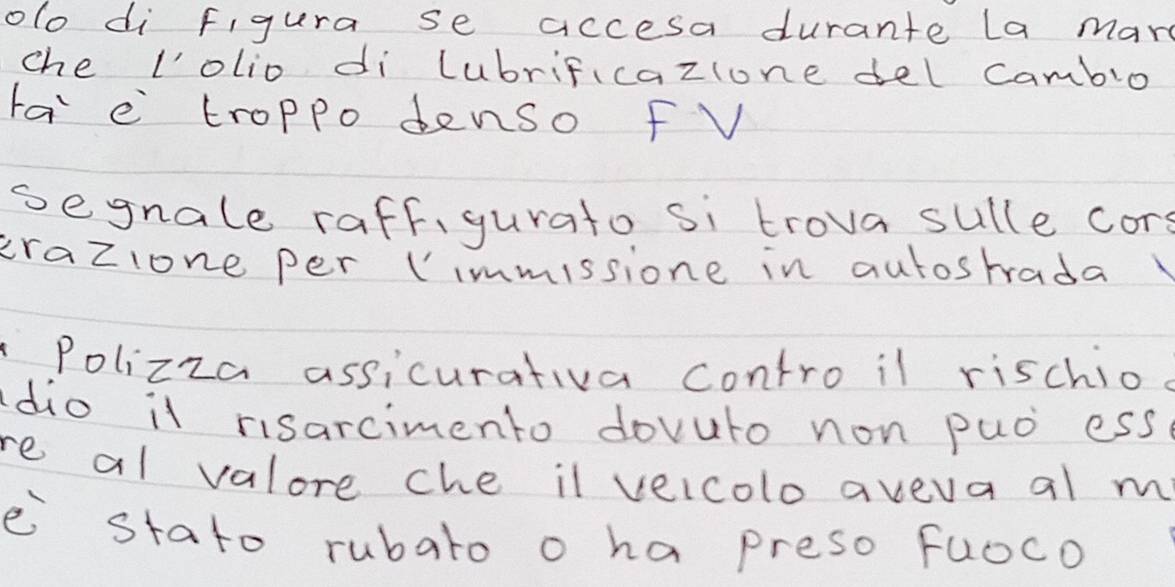 olo di figura se accesa durante la marc
che l'olio di lubrificazione del cambio
tà è troppo denso F V
segnale raffigurato si trova sulle cors
erazione per l'immissione in autostrada
Polizza assicurativa contro il rischio
dio il risarcimento dovuto non può esse
re al valore che il veicolo aveva al m
è stato rubato o ha preso fuoco